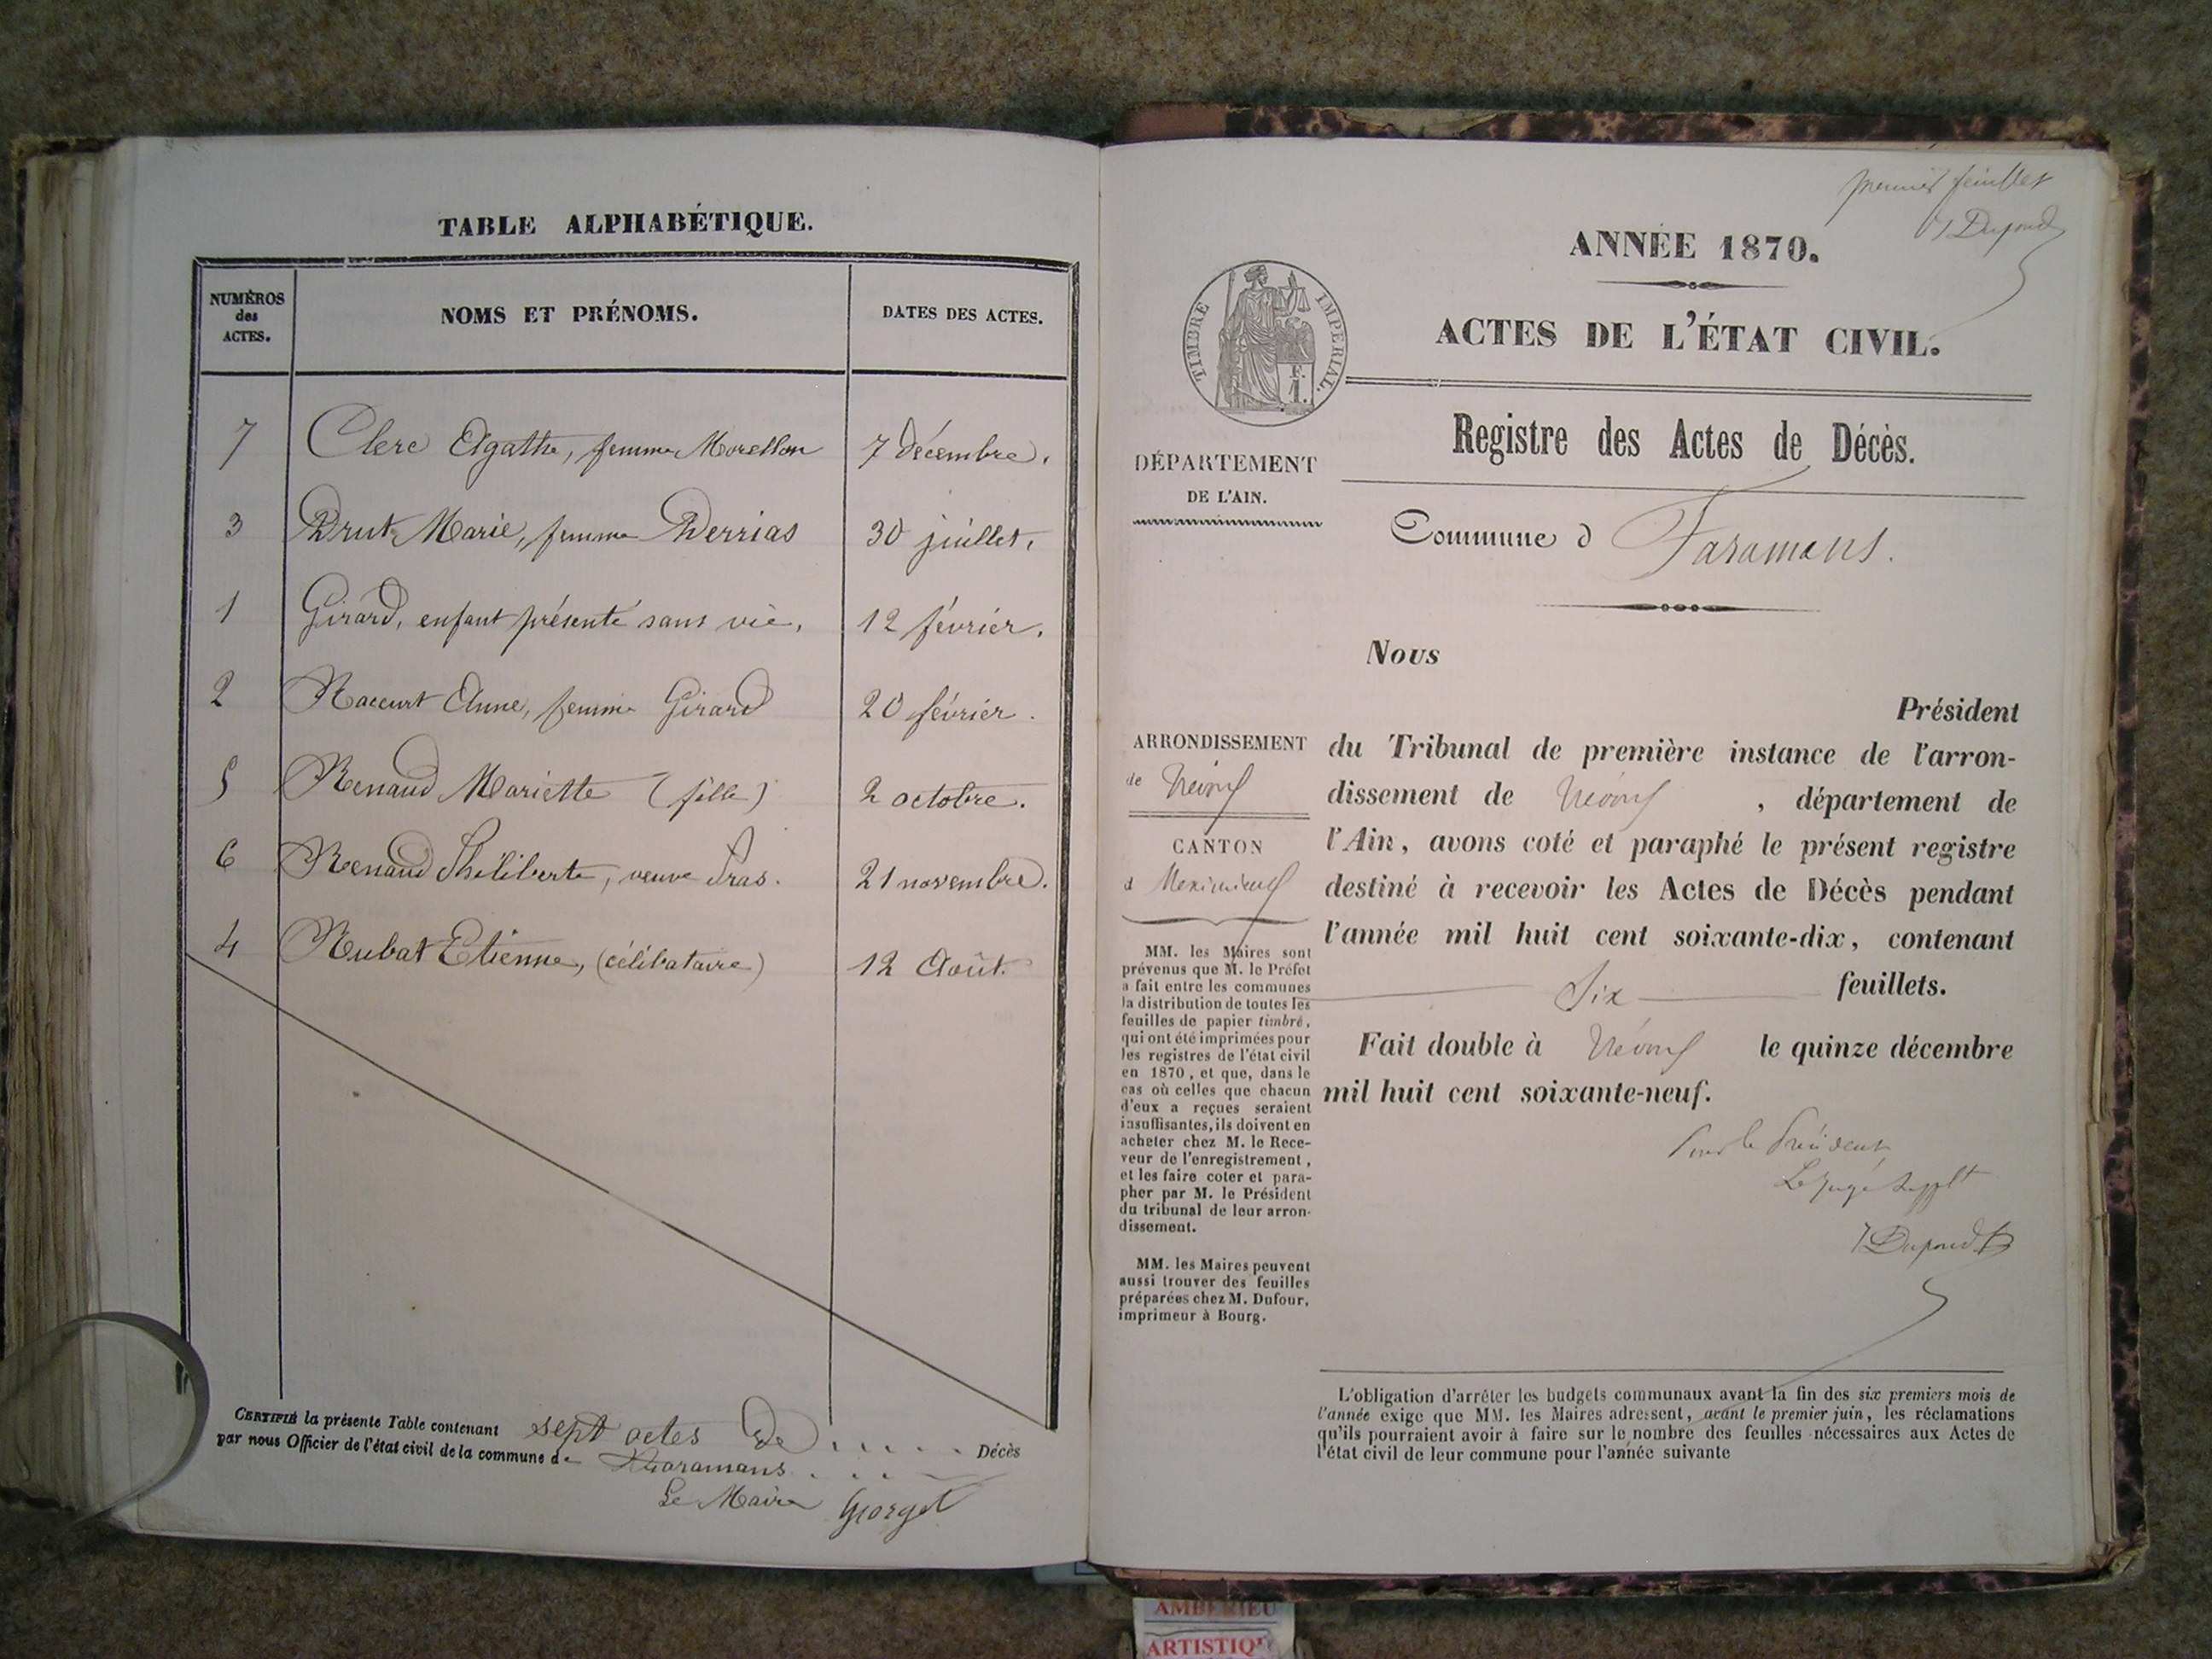 TABLE ALPHABÉTIQUE.
NUMÉROS des ACTES.
NOMS ET PRÉNOMS.
DATES DES ACTES.
7 Clerc Agathe, femme Morellon 7 décembre.
3 Drut Marie, femme Derrias 30 juillet.
1 Girard, enfant présenté sans vie, 12 février.
2 Raccurt Anne, femme Girard 20 février.
5 Renaud Mariette (fille) 2 octobre.
6 Renaud Philiberte, veuve Pras. 21 novembre.
4 Rubat Etienne, (célibataire) 12 Août.
CERTIFIÉ la présente Table contenant sept actes de ..... Décès
par nous Officier de l'état civil de la commune de Pharamans
Le Maire Georget
premier feuillet
Dupond
ANNÉE 1870.
ACTES DE L'ÉTAT CIVIL.
TIMBRE IMPERIAL.
F. 1.
Registre des Actes de Décès.
DÉPARTEMENT
DE L'AIN.
Commune d Faramans.
Nous
Président
du Tribunal de première instance de l'arron-
dissement de Trévoux, département de
l'Ain, avons coté et paraphé le présent registre
destiné à recevoir les Actes de Décès pendant
l'année mil huit cent soixante-dix, contenant
Six feuillets.
Fait double à Trévoux le quinze décembre
mil huit cent soixante-neuf.
Pour le Président
Le Juge Suppt
Dupond
ARRONDISSEMENT
de Trévoux
CANTON
d Meximieux
MM. les Maires sont
prévenus que M. le Préfet
a fait entre les communes
la distribution de toutes les
feuilles de papier timbré,
qui ont été imprimées pour
les registres de l'état civil
en 1870, et que, dans le
cas où celles que chacun
d'eux a reçues seraient
insuffisantes, ils doivent en
acheter chez M. le Rece-
veur de l'enregistrement,
et les faire coter et para-
pher par M. le Président
du tribunal de leur arron-
dissement.
MM. les Maires peuvent
aussi trouver des feuilles
préparées chez M. Dufour,
imprimeur à Bourg.
L'obligation d'arrêter les budgets communaux avant la fin des six premiers mois de
l'année exige que MM. les Maires adressent, avant le premier juin, les réclamations
qu'ils pourraient avoir à faire sur le nombre des feuilles nécessaires aux Actes de
l'état civil de leur commune pour l'année suivante
AMBERIEU
ARTISTIQU